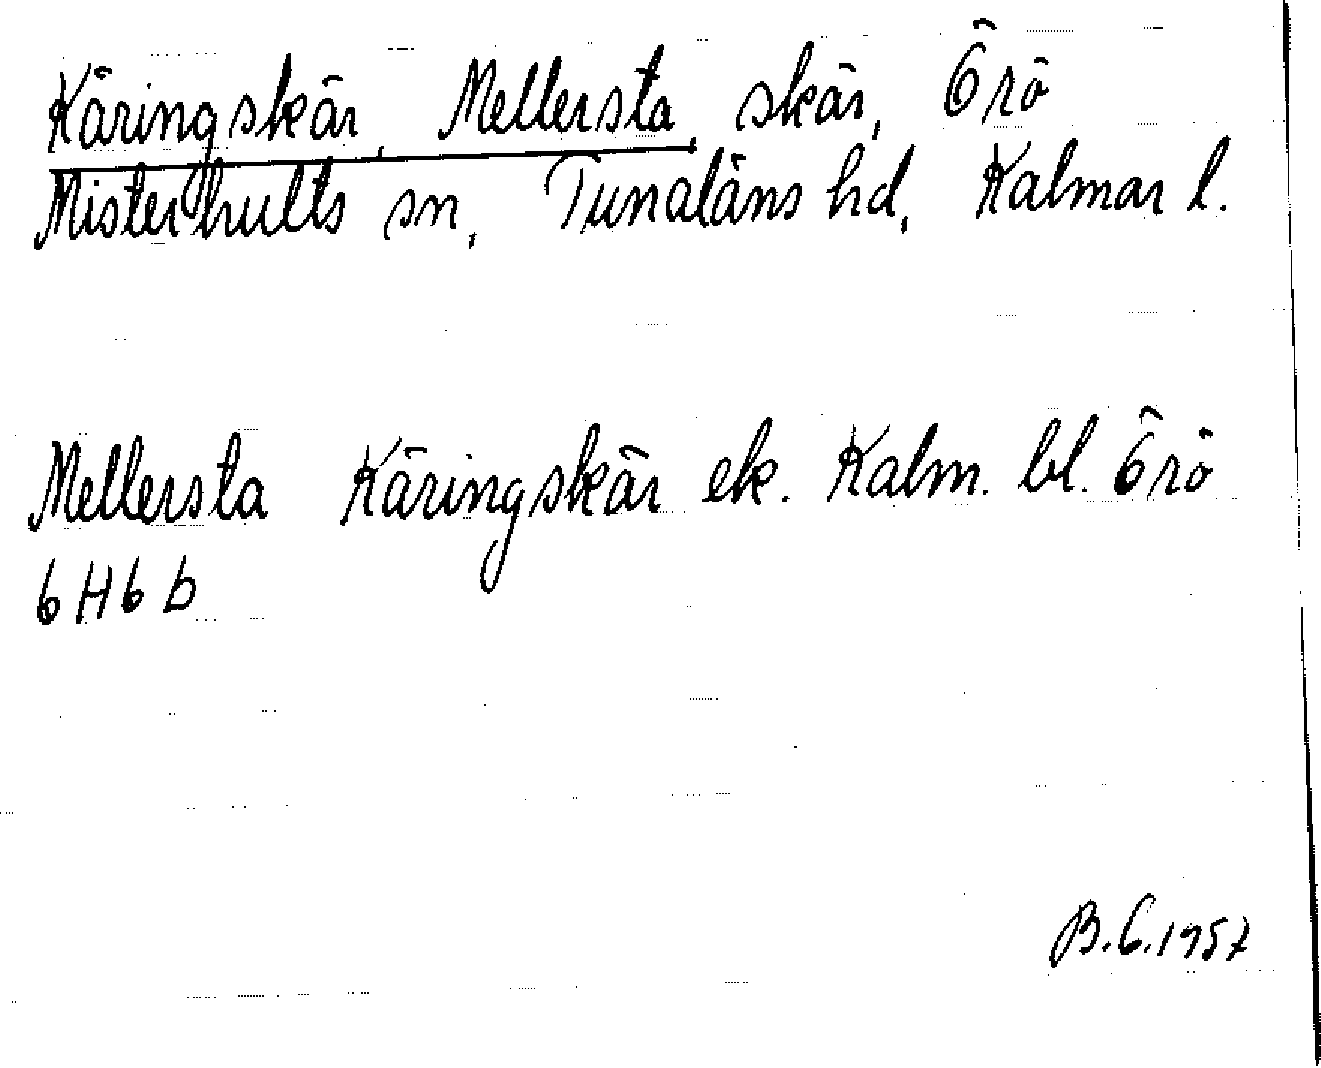 Käringskär, Mellersta, skär, Örö
Misterhults sn, Tunaläns hd, Kalmar l.
Mellersta Käringskär ek. Kalm. bl. Örö
6H6b
B.G.1957